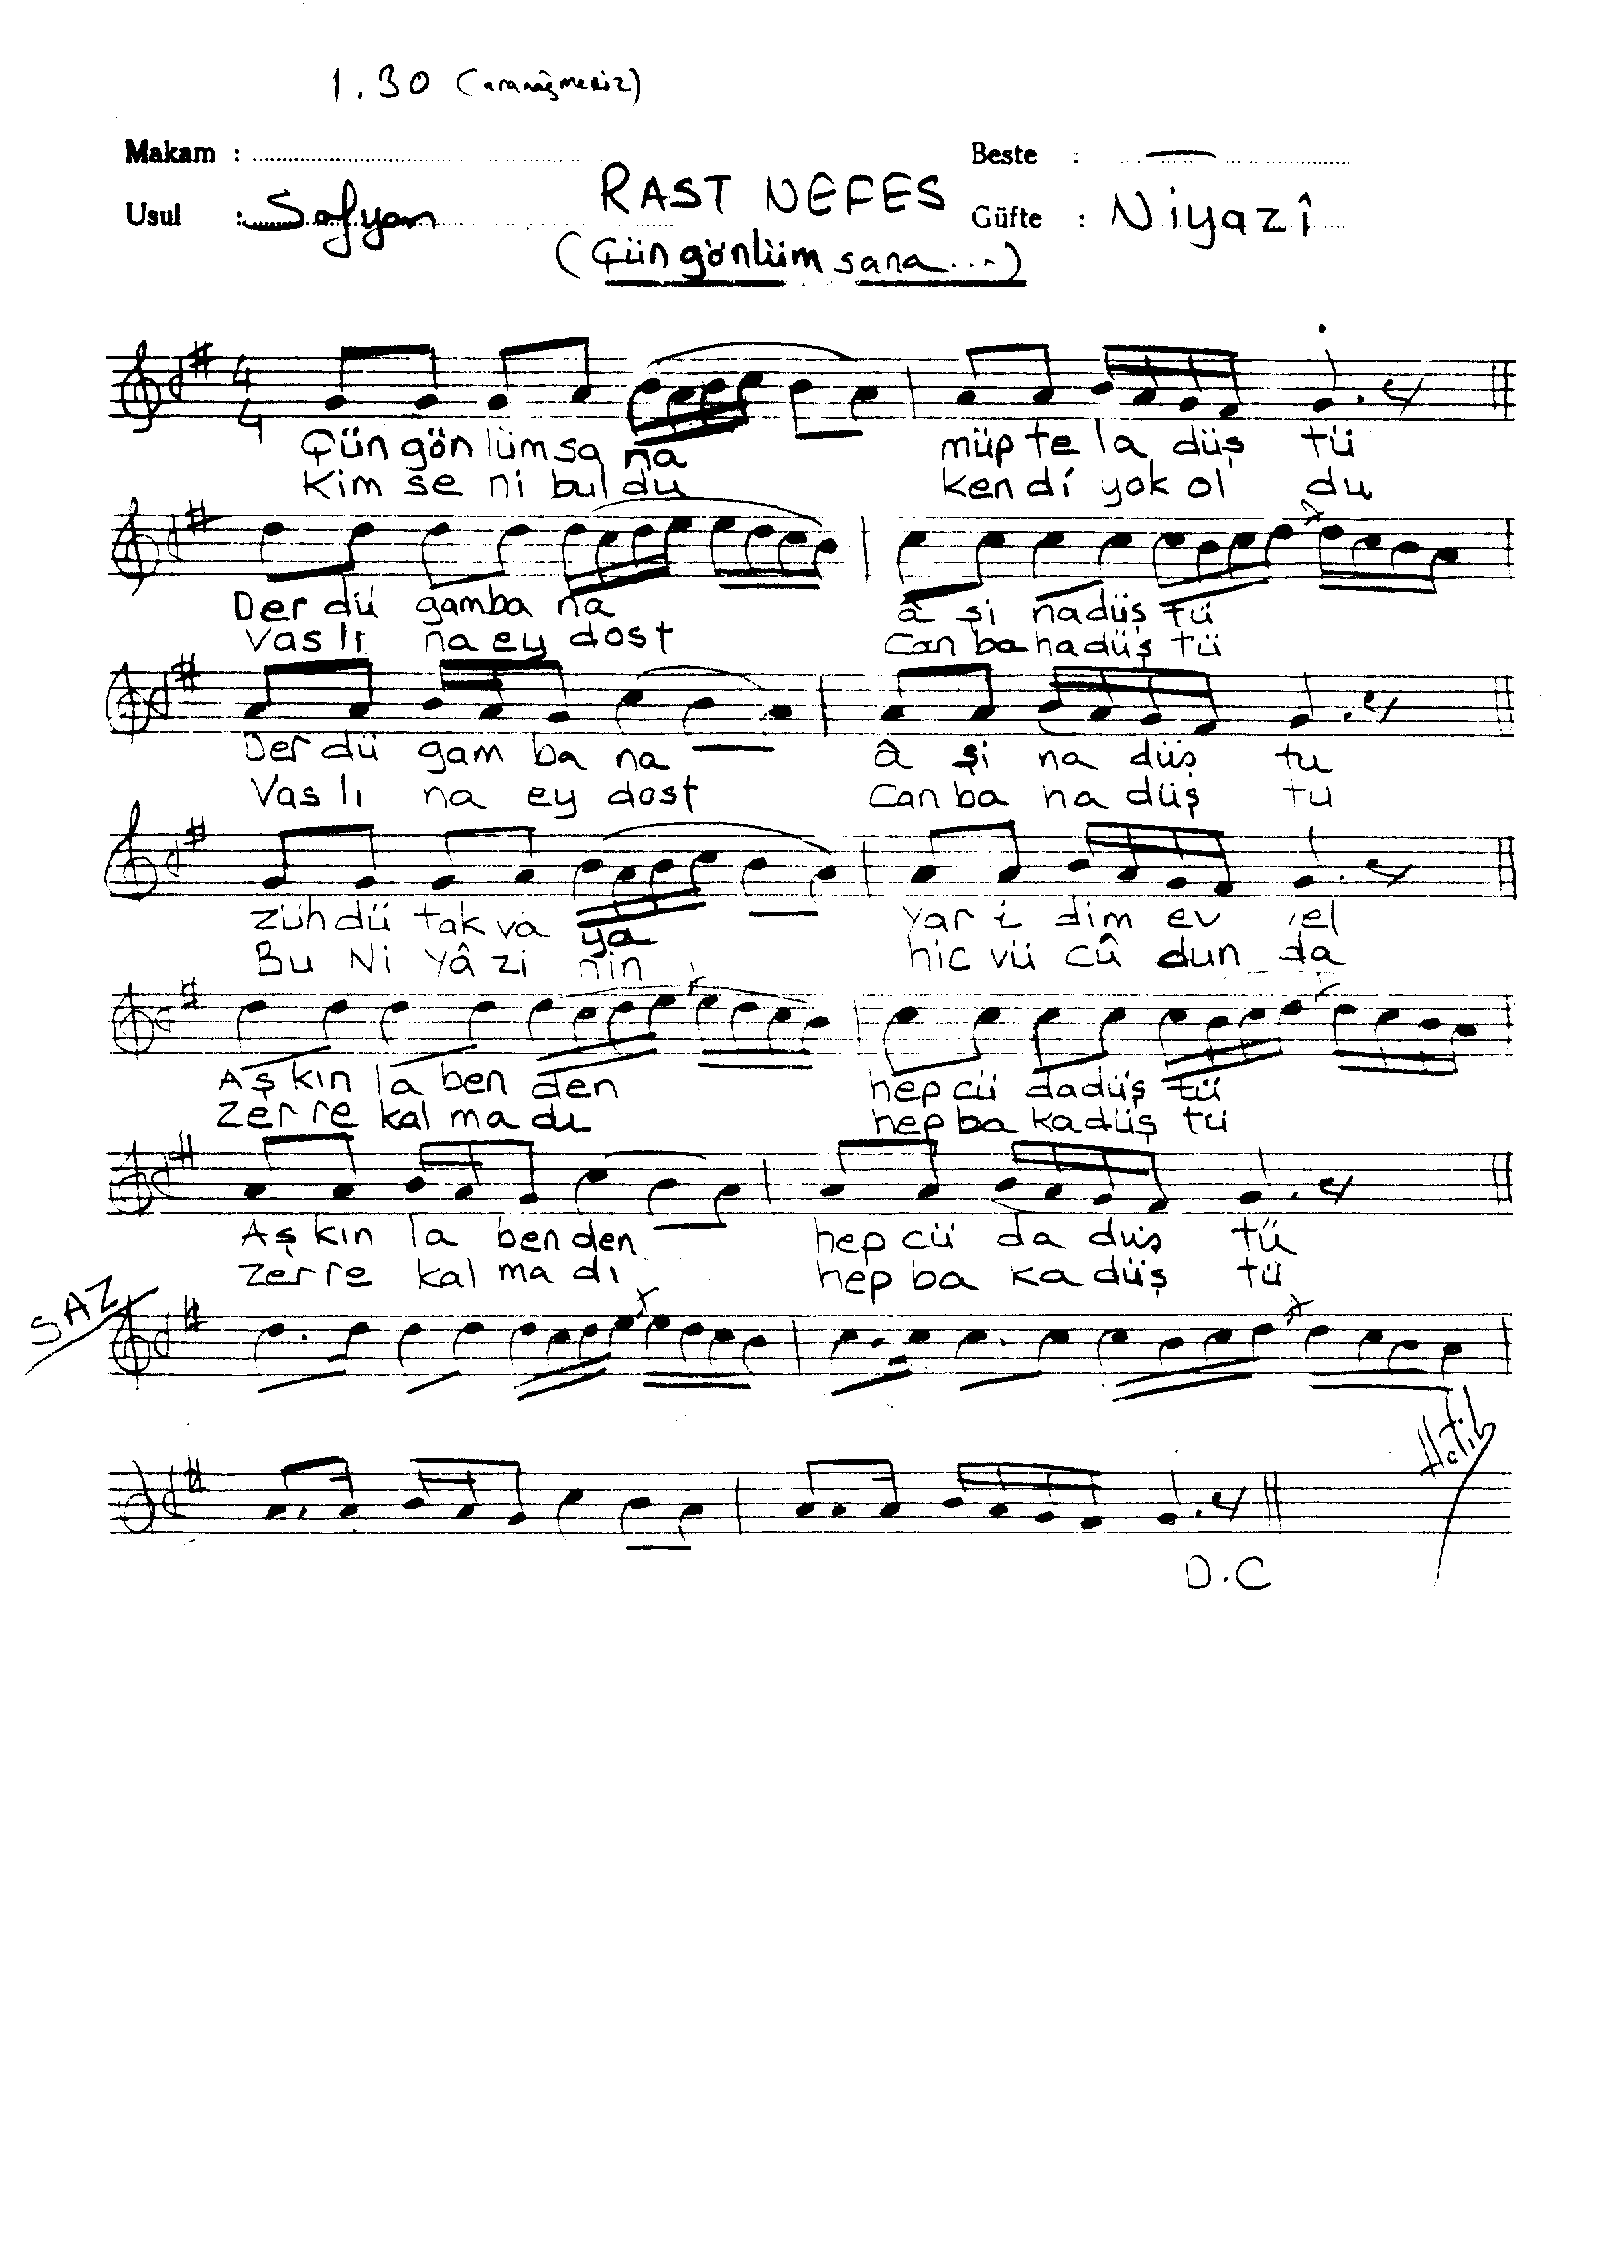 1.30 (aranağmesiz)
Makam :
Beste :
RAST NEFES
Usul : Sofyan
Güfte : Niyazî
(Çün gönlüm sana...)
4
4
Çün gön lüm sa na müp te la düş tü
Kim se ni bul du ken di yok ol du
Der dü gam ba na â şi na düş tü
Vas lı na ey dost Can ba ha düş tü
Der dü gam ba na â şi na düş tu
Vas lı na ey dost Can ba ha düş tü
züh dü tak va ya yar i dim ev vel
Bu Ni yâ zi nin hic vü cû dun da
Aş kın la ben den hep cü da düş tü
Zer re kal ma dı hep ba ka düş tü
Aş kın la ben den hep cü da düş tü
Zer re kal ma dı hep ba ka düş tü
SAZ
Hatib
D.C